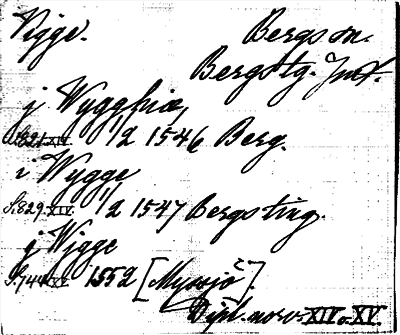 Vigge. Bergs sn.
Bergs tg. Jmt.
j Wygghia,
S.821.XIV. 1/2 1546 Berg.
i Wygge
S.829.XIV. 1/2 1547 Bergs ting.
j Wigge
S.744.XV. 1552 [Myssjö].
Dipl. norv. XIV o. XV.